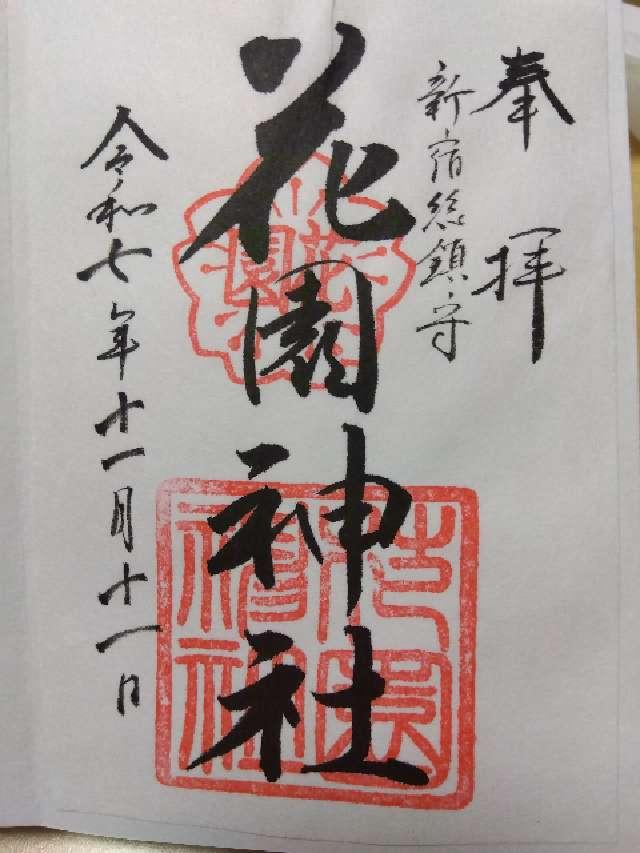 奉拝
新宿総鎮守
花園神社
花園
花園神社
令和七年十一月十一日